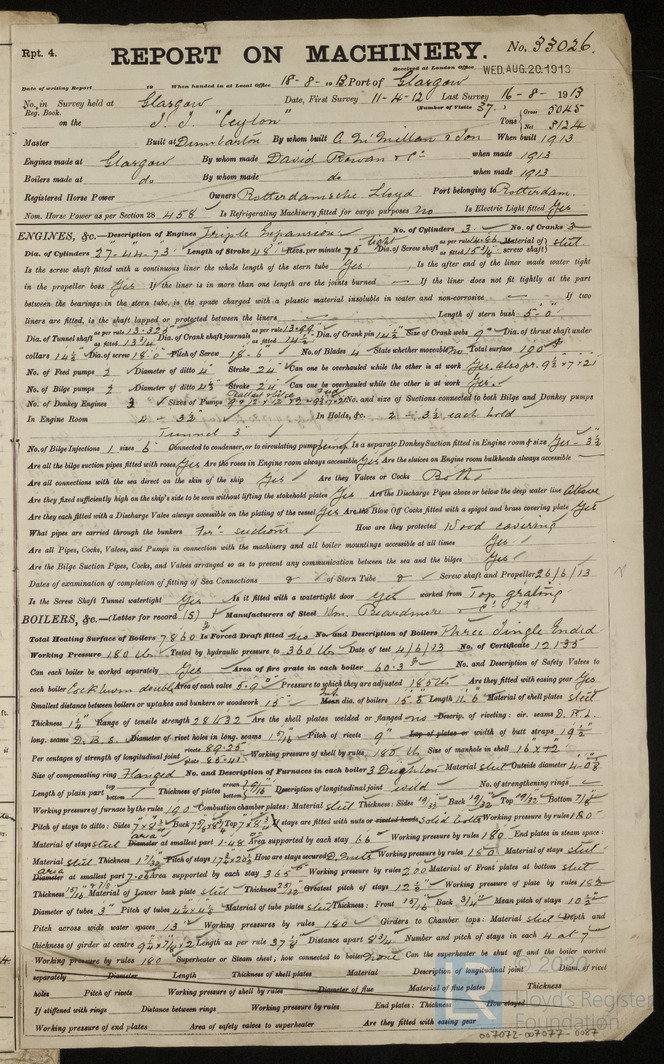 Rpt. 4.
REPORT ON MACHINERY. No. 33026.
Received at London Office WED. AUG. 20. 1913
Date of writing Report 19 When handed in at Local Office 18-8-1913 Port of Glasgow
No. in Survey held at Glasgow Date, First Survey 11-4-12 Last Survey 16-8-1913
Reg. Book. (Number of Visits 37)
on the "Ceylon" Tons Gross 5045 Net 3124
Master Built at Dumbarton By whom built A. McMillan & Son When built 1913
Engines made at Glasgow By whom made David Rowan & Co when made 1913
Boilers made at do By whom made do when made 1913
Registered Horse Power Owners Rotterdamsche Lloyd Port belonging to Rotterdam.
Nom. Horse Power as per Section 28 458 Is Refrigerating Machinery fitted for cargo purposes No Is Electric Light fitted Yes
ENGINES, &c.—Description of Engines Triple Expansion No. of Cylinders 3 No. of Cranks 3
Dia. of Cylinders 27"-44"-73" Length of Stroke 48" Revs. per minute 75 Dia. of Screw shaft as per rule 14.86 as fitted 15 3/4" Material of screw shaft steel
Is the screw shaft fitted with a continuous liner the whole length of the stern tube Yes Is the after end of the liner made water tight
in the propeller boss Yes If the liner is in more than one length are the joints burned — If the liner does not fit tightly at the part
between the bearings in the stern tube, is the space charged with a plastic material insoluble in water and non-corrosive — If two
liners are fitted, is the shaft lapped or protected between the liners — Length of stern bush 5'-0"
Dia. of Tunnel shaft as per rule 13.325 as fitted 13 3/4 Dia. of Crank shaft journals as per rule 13.99 as fitted 14 1/2 Dia. of Crank pin 14 1/2" Size of Crank webs 9" Dia. of thrust shaft under
collars 14 1/2 Dia. of screw 18'-0" Pitch of Screw 18'-6" No. of Blades 4 State whether moveable no Total surface 100
No. of Feed pumps 2 Diameter of ditto 4" Stroke 24" Can one be overhauled while the other is at work Yes, also pr. 9 1/2 x 7 x 21
No. of Bilge pumps 2 Diameter of ditto 4 1/2 Stroke 24" Can one be overhauled while the other is at work Yes.
No. of Donkey Engines 3 Sizes of Pumps No. and size of Suctions connected to both Bilge and Donkey pumps
In Engine Room 4 - 3 1/2" In Holds, &c. 2 - 3 1/2 each hold
Tunnel 3"
No. of Bilge Injections 1 sizes 6" Connected to condenser, or to circulating pump pump Is a separate Donkey Suction fitted in Engine room & size Yes - 3 1/2
Are all the bilge suction pipes fitted with roses Yes Are the roses in Engine room always accessible Yes Are the sluices on Engine room bulkheads always accessible —
Are all connections with the sea direct on the skin of the ship Yes Are they Valves or Cocks Both
Are they fixed sufficiently high on the ship's side to be seen without lifting the stokehold plates Yes Are the Discharge Pipes above or below the deep water line above
Are they each fitted with a Discharge Valve always accessible on the plating of the vessel Yes Are the Blow Off Cocks fitted with a spigot and brass covering plate Yes
What pipes are carried through the bunkers For'd suctions How are they protected Wood covering
Are all Pipes, Cocks, Valves, and Pumps in connection with the machinery and all boiler mountings accessible at all times Yes
Are the Bilge Suction Pipes, Cocks, and Valves arranged so as to prevent any communication between the sea and the bilges Yes
Dates of examination of completion of fitting of Sea Connections & of Stern Tube & Screw shaft and Propeller 26/6/13
Is the Screw Shaft Tunnel watertight Yes Is it fitted with a watertight door Yes worked from Top grating
BOILERS, &c.—(Letter for record (S)) Manufacturers of Steel Wm. Beardmore & Co Ld
Total Heating Surface of Boilers 7860 Is Forced Draft fitted yes No. and Description of Boilers Three Single Ended
Working Pressure 180 lbs Tested by hydraulic pressure to 360 lbs Date of test 4/6/13 No. of Certificate 12135
Can each boiler be worked separately Yes Area of fire grate in each boiler 60.3 No. and Description of Safety Valves to
each boiler Cockburn double Area of each valve 5.9" Pressure to which they are adjusted 185 lbs Are they fitted with easing gear Yes
Smallest distance between boilers or uptakes and bunkers or woodwork 15" Mean dia. of boilers 15'.8" Length 11'.6" Material of shell plates steel
Thickness 1 1/4" Range of tensile strength 28 & 32 Are the shell plates welded or flanged no Descrip. of riveting: cir. seams D.R.L.
long. seams D.B.S. Diameter of rivet holes in long. seams 1 5/16 Pitch of rivets 9" Lap of plates or width of butt straps 19 1/2
Per centages of strength of longitudinal joint rivets 89.25 plate 85.41 Working pressure of shell by rules 180 lb Size of manhole in shell 16" x 12"
Size of compensating ring Flanged No. and Description of Furnaces in each boiler 3 Deighton Material steel Outside diameter
Length of plain part top bottom Thickness of plates crown bottom Description of longitudinal joint weld No. of strengthening rings
Working pressure of furnace by the rules 190 Combustion chamber plates: Material steel Thickness: Sides 19/32 Back 19/32 Top 19/32 Bottom 7/8
Pitch of stays to ditto: Sides Back Top If stays are fitted with nuts or riveted heads solid bolts Working pressure by rules 180
Material of stays steel Diameter at smallest part 1.48 Area supported by each stay 66 Working pressure by rules 180 End plates in steam space:
Material steel Thickness 1 7/32 Pitch of stays How are stays secured D. nuts Working pressure by rules 180 Material of stays steel
Diameter at smallest part Area supported by each stay 365 Working pressure by rules 200 Material of Front plates at bottom steel
Thickness 15/16 Material of Lower back plate steel Thickness 25/32 Greatest pitch of stays 12 5/8 Working pressure of plate by rules 182
Diameter of tubes 3" Pitch of tubes Material of tube plates steel Thickness: Front 15/16 Back 3/4" Mean pitch of stays 10 3/8
Pitch across wide water spaces 13" Working pressures by rules 180 Girders to Chamber tops: Material steel Depth and
thickness of girder at centre Length as per rule 37 Distance apart 8 3/4 Number and pitch of stays in each 4 at 7
Working pressure by rules 180 Superheater or Steam chest; how connected to boiler None Can the superheater be shut off and the boiler worked
separately Diameter Length Thickness of shell plates Material Description of longitudinal joint Diam. of rivet
holes Pitch of rivets Working pressure of shell by rules Diameter of flue Material of flue plates Thickness
If stiffened with rings Distance between rings Working pressure by rules End plates: Thickness How stayed
Working pressure of end plates Area of safety valves to superheater Are they fitted with easing gear
© 2020
Lloyd's Register
Foundation
007072-007077-0087